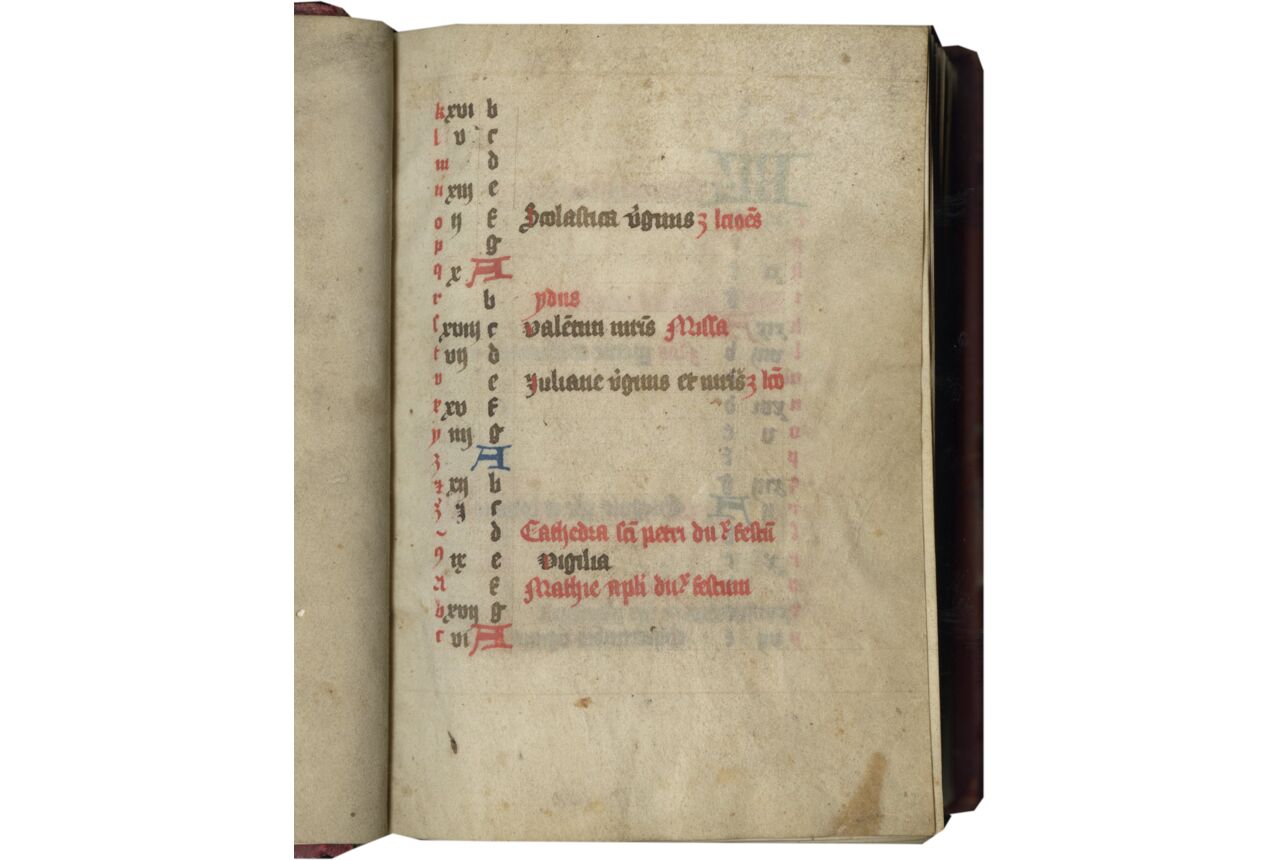 k xvi b
l v c
m d
n xiij e
o ij f Scolastica v̄ginis ꝫ lcioēs
p g
q x A
r b ydus
ſ xviij c valētini m̄ris Miſſa
t vij d
v e Juliane v̄ginis et m̄ris ꝫ lcō
x xv f
y iiij g
z A
xij b
j c
d Cathedra ſcī petri du x feſtū
9 ix e vigilia
a f Mathie apli du x feſtum
b xvij g
c vi A